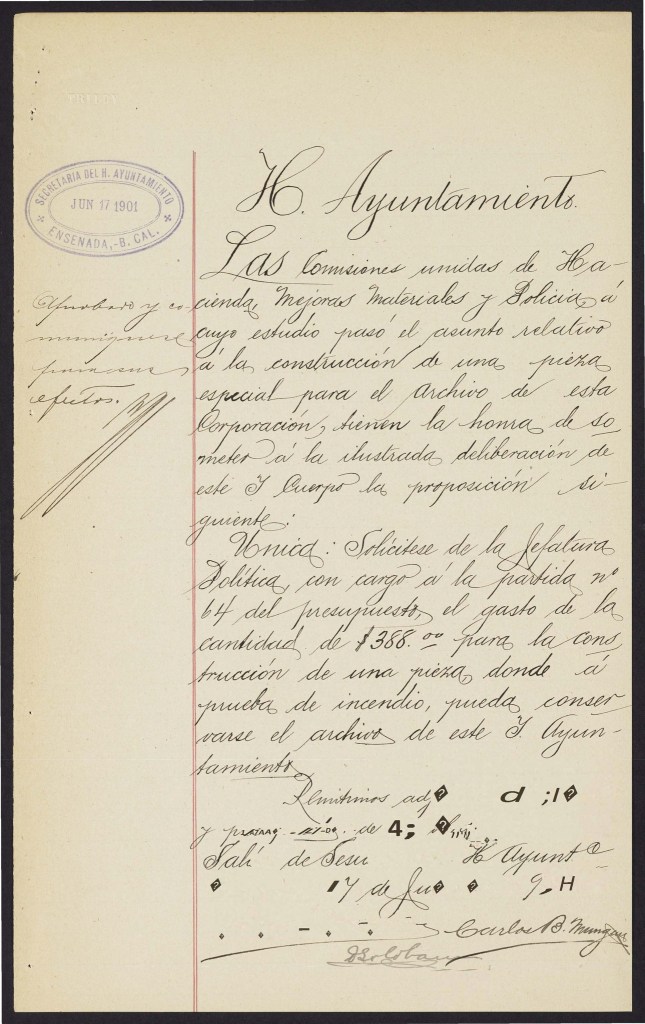 SECRETARIA DEL H. AYUNTAMIENTO
JUN 17 1901
ENSENADA,-B. CAL.
H. Ayuntamiento.
Las Comisiones unidas de Ha-
cienda, Mejoras Materiales y Policia, á
cuyo estudio pasó el asunto relativo
á la construcción de una pieza
especial para el archivo de esta
Corporación, tienen la honra de so
meter á la ilustrada deliberación de
este I Cuerpo la proposición si-
guiente:
Unica: Solicítese de la Jefatura
Política, con cargo á la partida nº
64 del presupuesto, el gasto de la
cantidad de $388.00 para la cons
trucción de una pieza donde á
prueba de incendio, pueda conser
varse el archivo de este I. Ayun-
tamiento
Aprobado y co-
muníquese
para sus
efectos.
y de 4;
H Ayunt
17 de Ju
Carlos B.